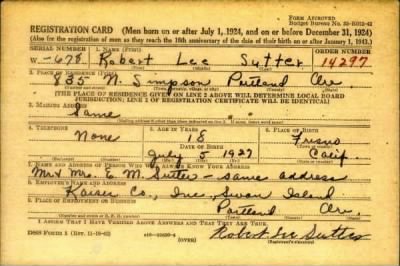 REGISTRATION CARD (Men born on or after July 1, 1924, and on or before December 31, 1924)
FORM APPROVED
(Also for the registration of men as they reach the 18th anniversary of the date of their birth on or after January 1, 1943.)
SERIAL NUMBER 1. NAME (Print) ORDER NUMBER
W-678 Robert Lee Sutter 14297
2. PLACE OF RESIDENCE (Print)
835 N. Simpson Portland Ore.
(THE PLACE OF RESIDENCE GIVEN ON LINE 2 ABOVE WILL DETERMINE LOCAL BOARD
JURISDICTION; LINE 2 OF REGISTRATION CERTIFICATE WILL BE IDENTICAL)
3. MAILING ADDRESS
Same
4. TELEPHONE 5. AGE IN YEARS 6. PLACE OF BIRTH
None 18 Fresno
DATE OF BIRTH
July 5 1927 Calif.
7. NAME AND ADDRESS OF PERSON WHO WILL ALWAYS KNOW YOUR ADDRESS
Mr & Mrs. E. M. Sutter - same address
8. EMPLOYER'S NAME AND ADDRESS
Kaiser Co., Inc., Swan Island
9. PLACE OF EMPLOYMENT OR BUSINESS
Portland Ore.
I AFFIRM THAT I HAVE VERIFIED ABOVE ANSWERS AND THAT THEY ARE TRUE.
DSS Form 1 (Rev. 11-16-42) (OVER) Robert Lee Sutter
(Registrant's signature)